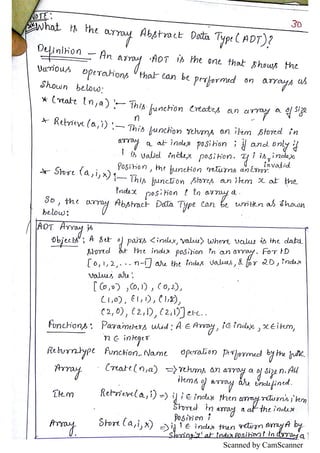 NOTE:
30
What is the array Abstract Data Type (ADT)?
Definition - An array ADT is the one that shows the
various operations that can be performed on arrays as
shown below:
* Create (n,a) :- This function creates an array a of size
n
* Retrieve (a,i) :- This function returns an item stored in
array a at index position i if and only if
i is valid index position. If i is index
invalid
position, the function returns an error.
* Store (a,i,x) :- This function stores an item x at the
index position i in array a.
So, the array Abstract Data Type can be written as shown
below:
ADT Array is
Objects: A set of pairs <index, value> where value is the data
stored at the index position in an array. For 1D
[0,1,2,...n-1] are the index values, & for 2D, index
values are:
[(0,0), (0,1), (0,2),
(1,0), (1,1), (1,2),
(2,0), (2,1), (2,2)] etc..
Functions: Parameters used: A ∈ Array, i ∈ index, x ∈ item,
n ∈ integer
Returntype Function_Name operation performed by the
Array Create (n,a) => returns an array a of size n. All
items of array are undefined.
Item Retrieve (a,i) => if i ∈ index then array returns item
stored in array a at the index
position i
Array Store (a,i,x) => if i ∈ index then return array A by
storing 'x' at index position i in array a
Scanned by CamScanner